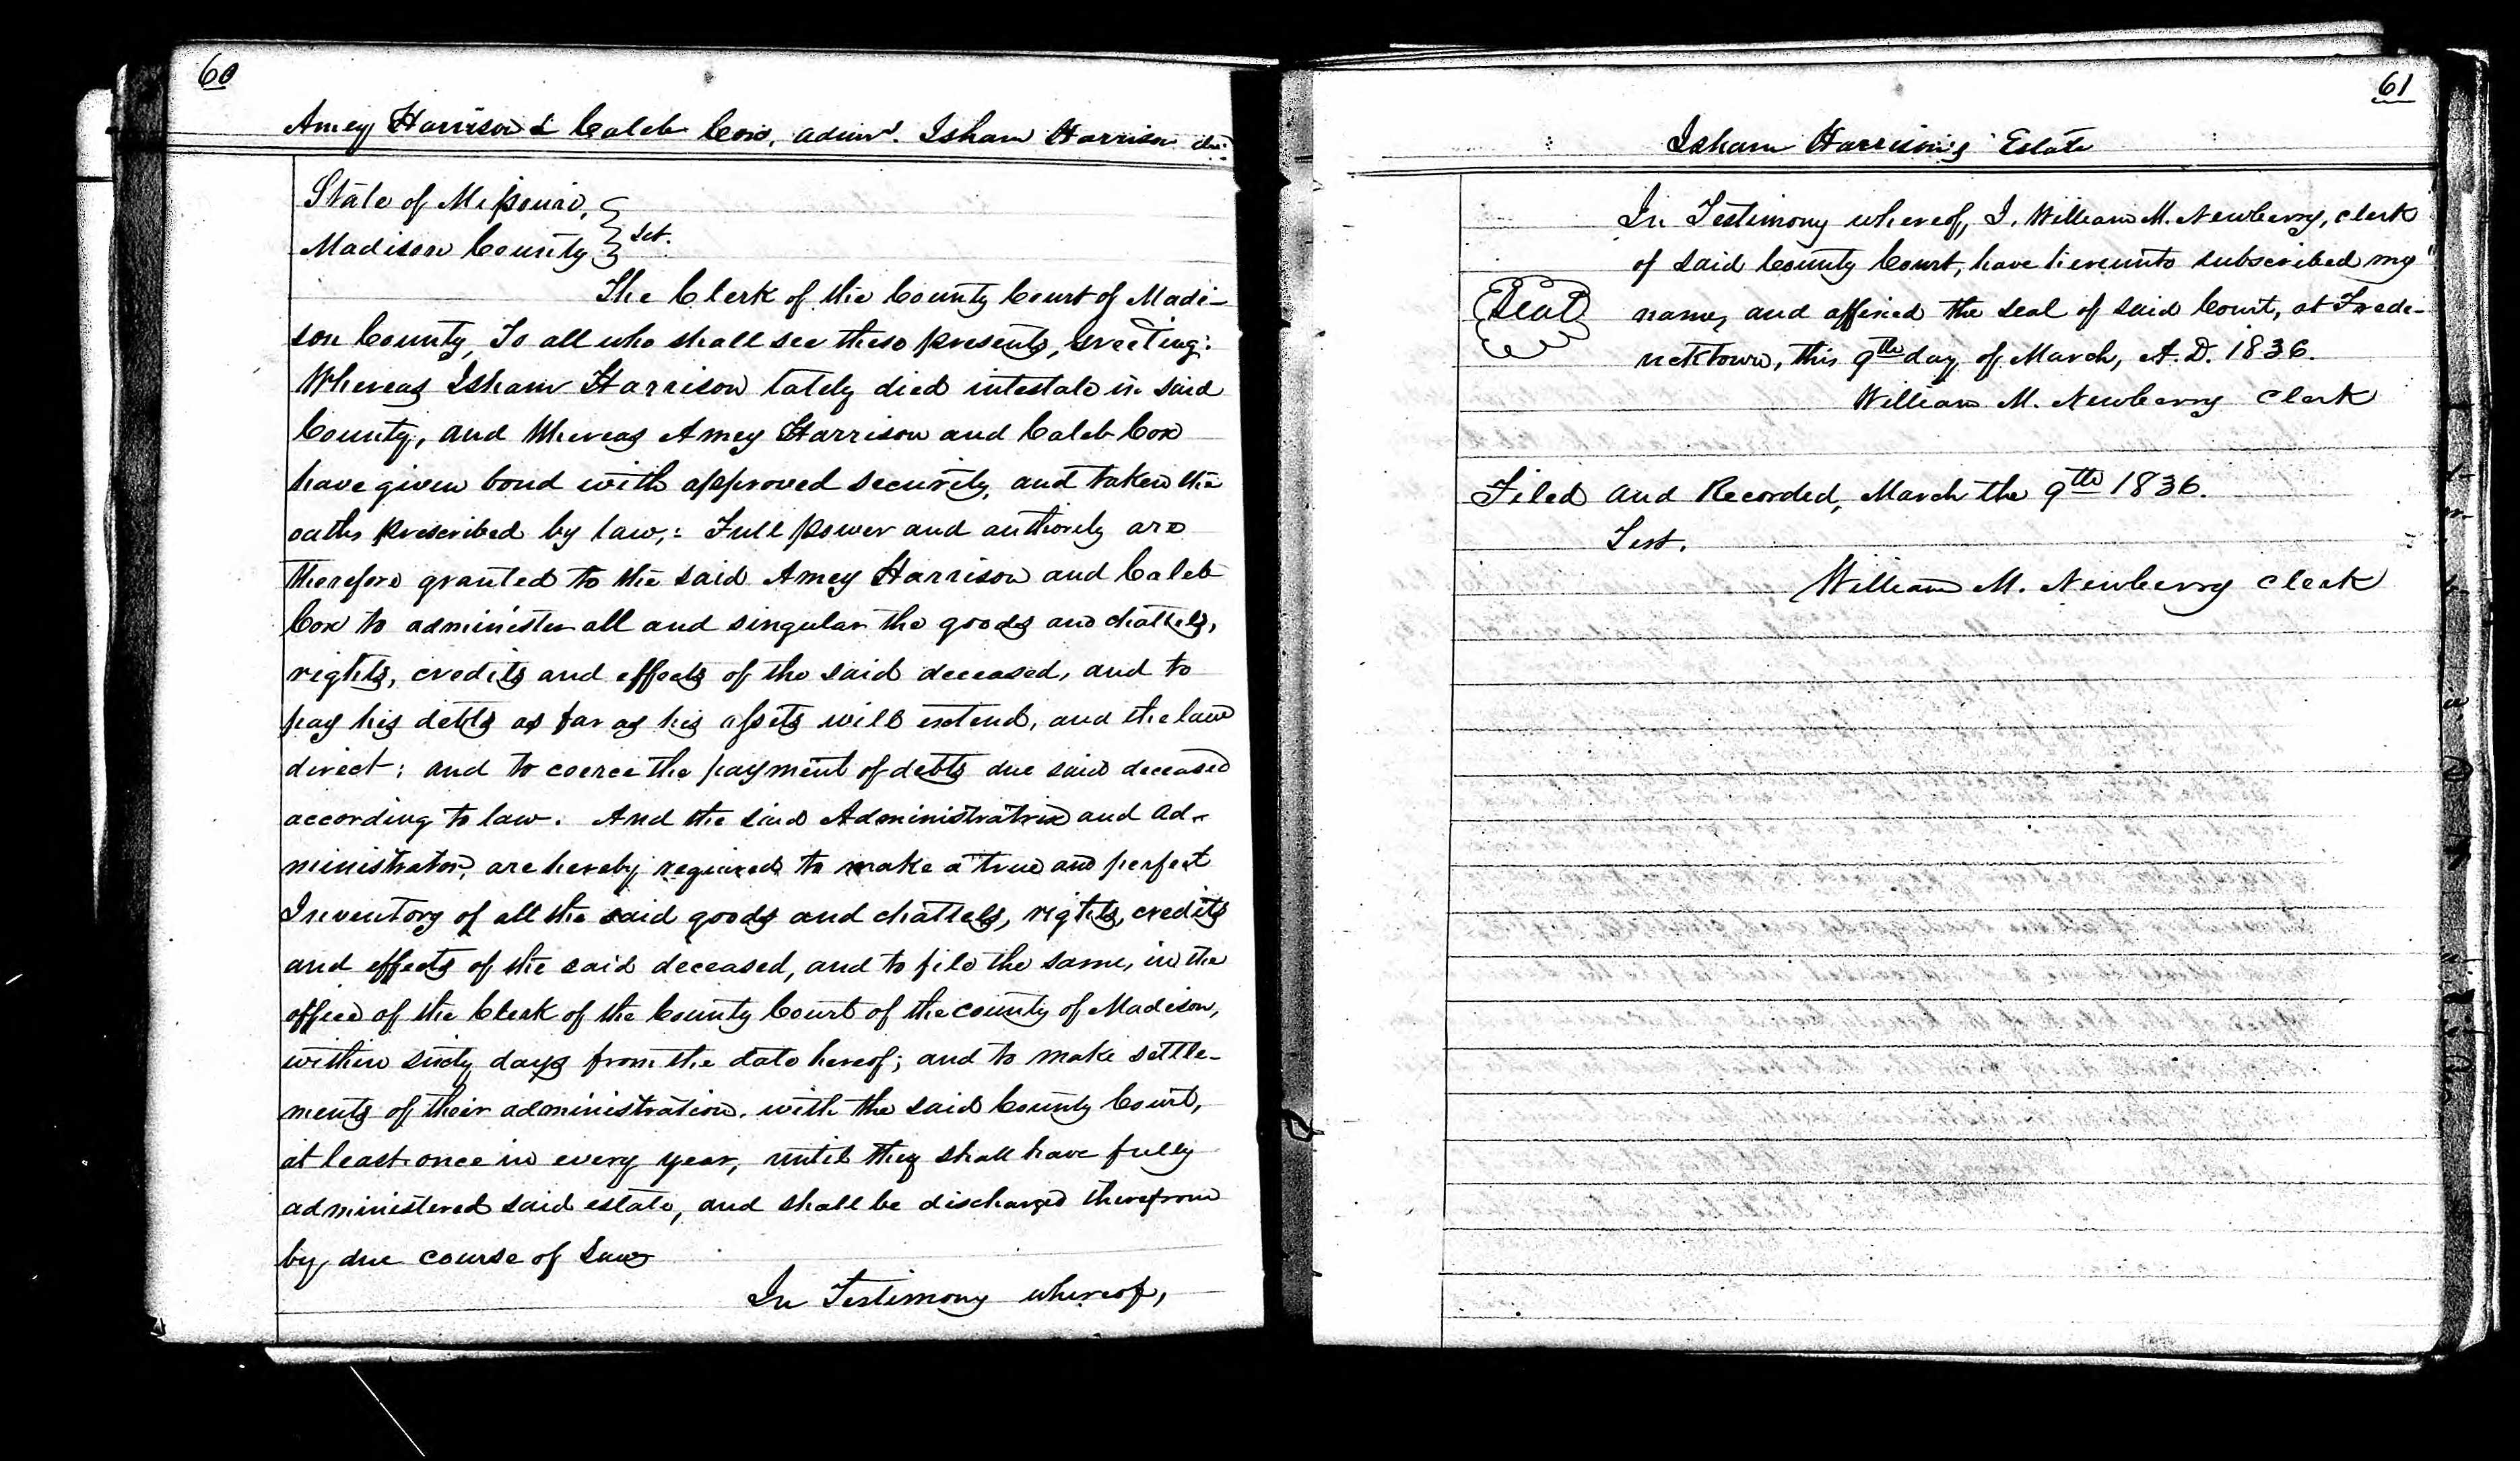 60
Amey Harrison & Caleb Cox, admrs. Isham Harrison dec.
State of Missouri,
Madison County } Sct.
The Clerk of the County Court of Madi-
son County, To all who shall see these presents, Greeting:
Whereas Isham Harrison lately died intestate in said
County, and Whereas Amey Harrison and Caleb Cox
have given bond with approved security, and taken the
oaths prescribed by law,: Full power and authority are
therefore granted to the said Amey Harrison and Caleb
Cox to administer all and singular the goods and chattels,
rights, credits and effects of the said deceased, and to
pay his debts as far as his assets will extend, and the law
direct; and to coerce the payment of debts due said deceased
according to law. And the said Administratrix and ad-
ministrator, are hereby required to make a true and perfect
Inventory of all the said goods and chattels, rights, credits
and effects of the said deceased, and to file the same, in the
office of the Clerk of the County Court of the county of Madison,
within sixty days from the date hereof; and to make settle-
ments of their administration. with the said County Court,
at least once in every year, until they shall have fully
administered said estate, and shall be discharged therefrom
by due course of Law
In Testimony whereof,
61
Isham Harrison's Estate
In Testimony whereof, I, William M. Newberry, clerk
of said County Court, have hereunto subscribed my
Seal name, and affixed the seal of said Court, at Frede-
ricktown, this 9th day of March, A.D. 1836.
William M. Newberry Clerk
Filed and Recorded, March the 9th 1836.
Test.
William M. Newberry Clerk